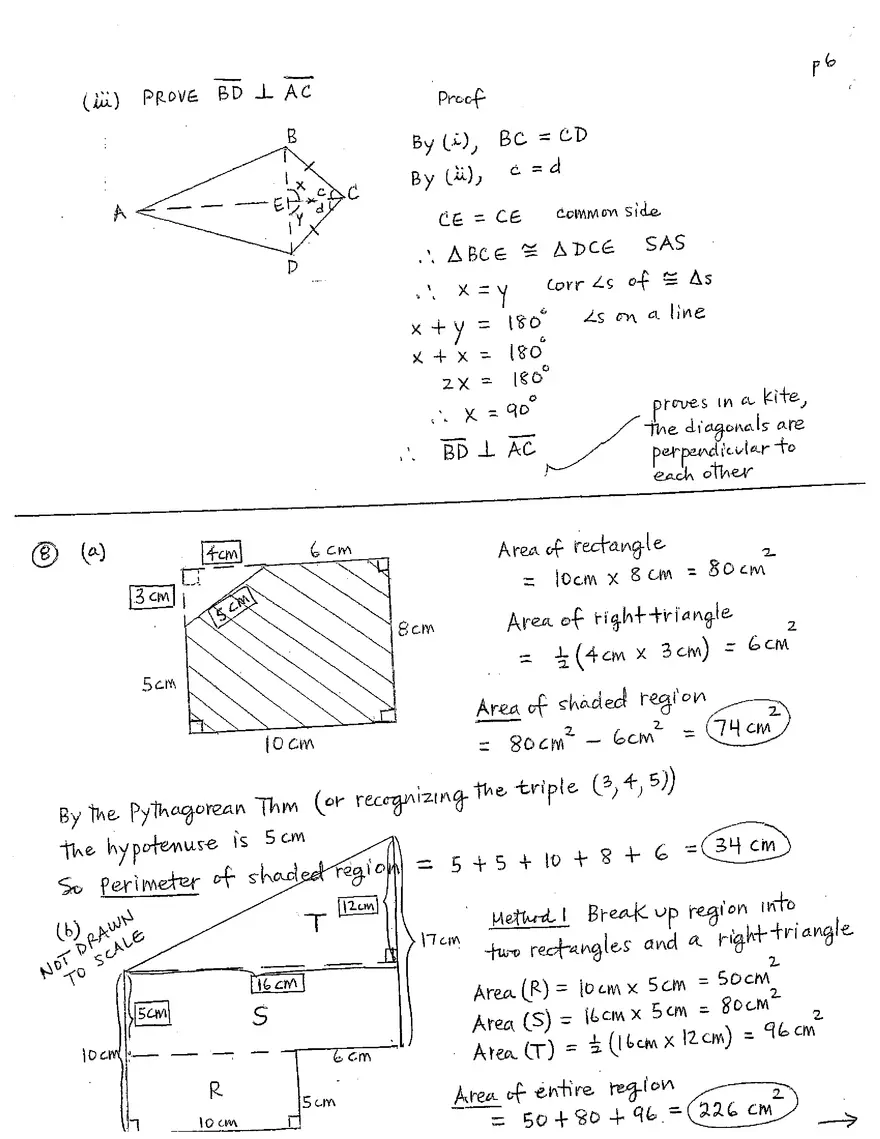 p6
(iii) PROVE BD ⊥ AC
Proof
B
A
E
C
D
x
y
c
d
By (i), BC = CD
By (ii), c = d
CE = CE common side
∴ ΔBCE ≅ ΔDCE SAS
∴ x = y corr ∠s of ≅ Δs
x + y = 180° ∠s on a line
x + x = 180°
2x = 180°
∴ x = 90°
∴ BD ⊥ AC
proves in a kite,
the diagonals are
perpendicular to
each other
⑧ (a)
4cm
6 cm
3 cm
5 cm
8 cm
5 cm
10 cm
Area of rectangle
= 10cm x 8 cm = 80 cm²
Area of right-triangle
= ½(4cm x 3cm) = 6cm²
Area of shaded region
= 80cm² − 6cm² = 74 cm²
By the Pythagorean Thm (or recognizing the triple (3,4,5))
the hypotenuse is 5 cm
So perimeter of shaded region = 5 + 5 + 10 + 8 + 6 = 34 cm
(b)
NOT DRAWN
TO SCALE
T
12cm
17cm
16 cm
5cm
S
10cm
6 cm
R
5cm
10 cm
Method 1 Break up region into
two rectangles and a right-triangle
Area (R) = 10cm x 5cm = 50cm²
Area (S) = 16cm x 5cm = 80cm²
Area (T) = ½(16cm x 12cm) = 96 cm²
Area of entire region
= 50 + 80 + 96 = 226 cm² →